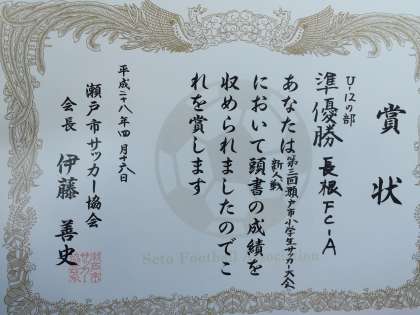 賞状
U-12の部
準優勝 長根FC-A
あなたは第三回瀬戸市小学生サッカー大会
新人戦
において頭書の成績を
収められましたのでこ
れを賞します
平成二十八年四月十六日
瀬戸市サッカー協会
会長 伊藤善史
Seto Football Association